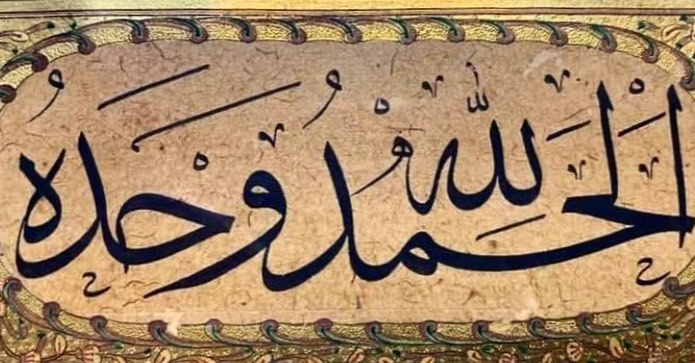 الْحَمْدُ لِلّٰهِ وَحْدَهُ